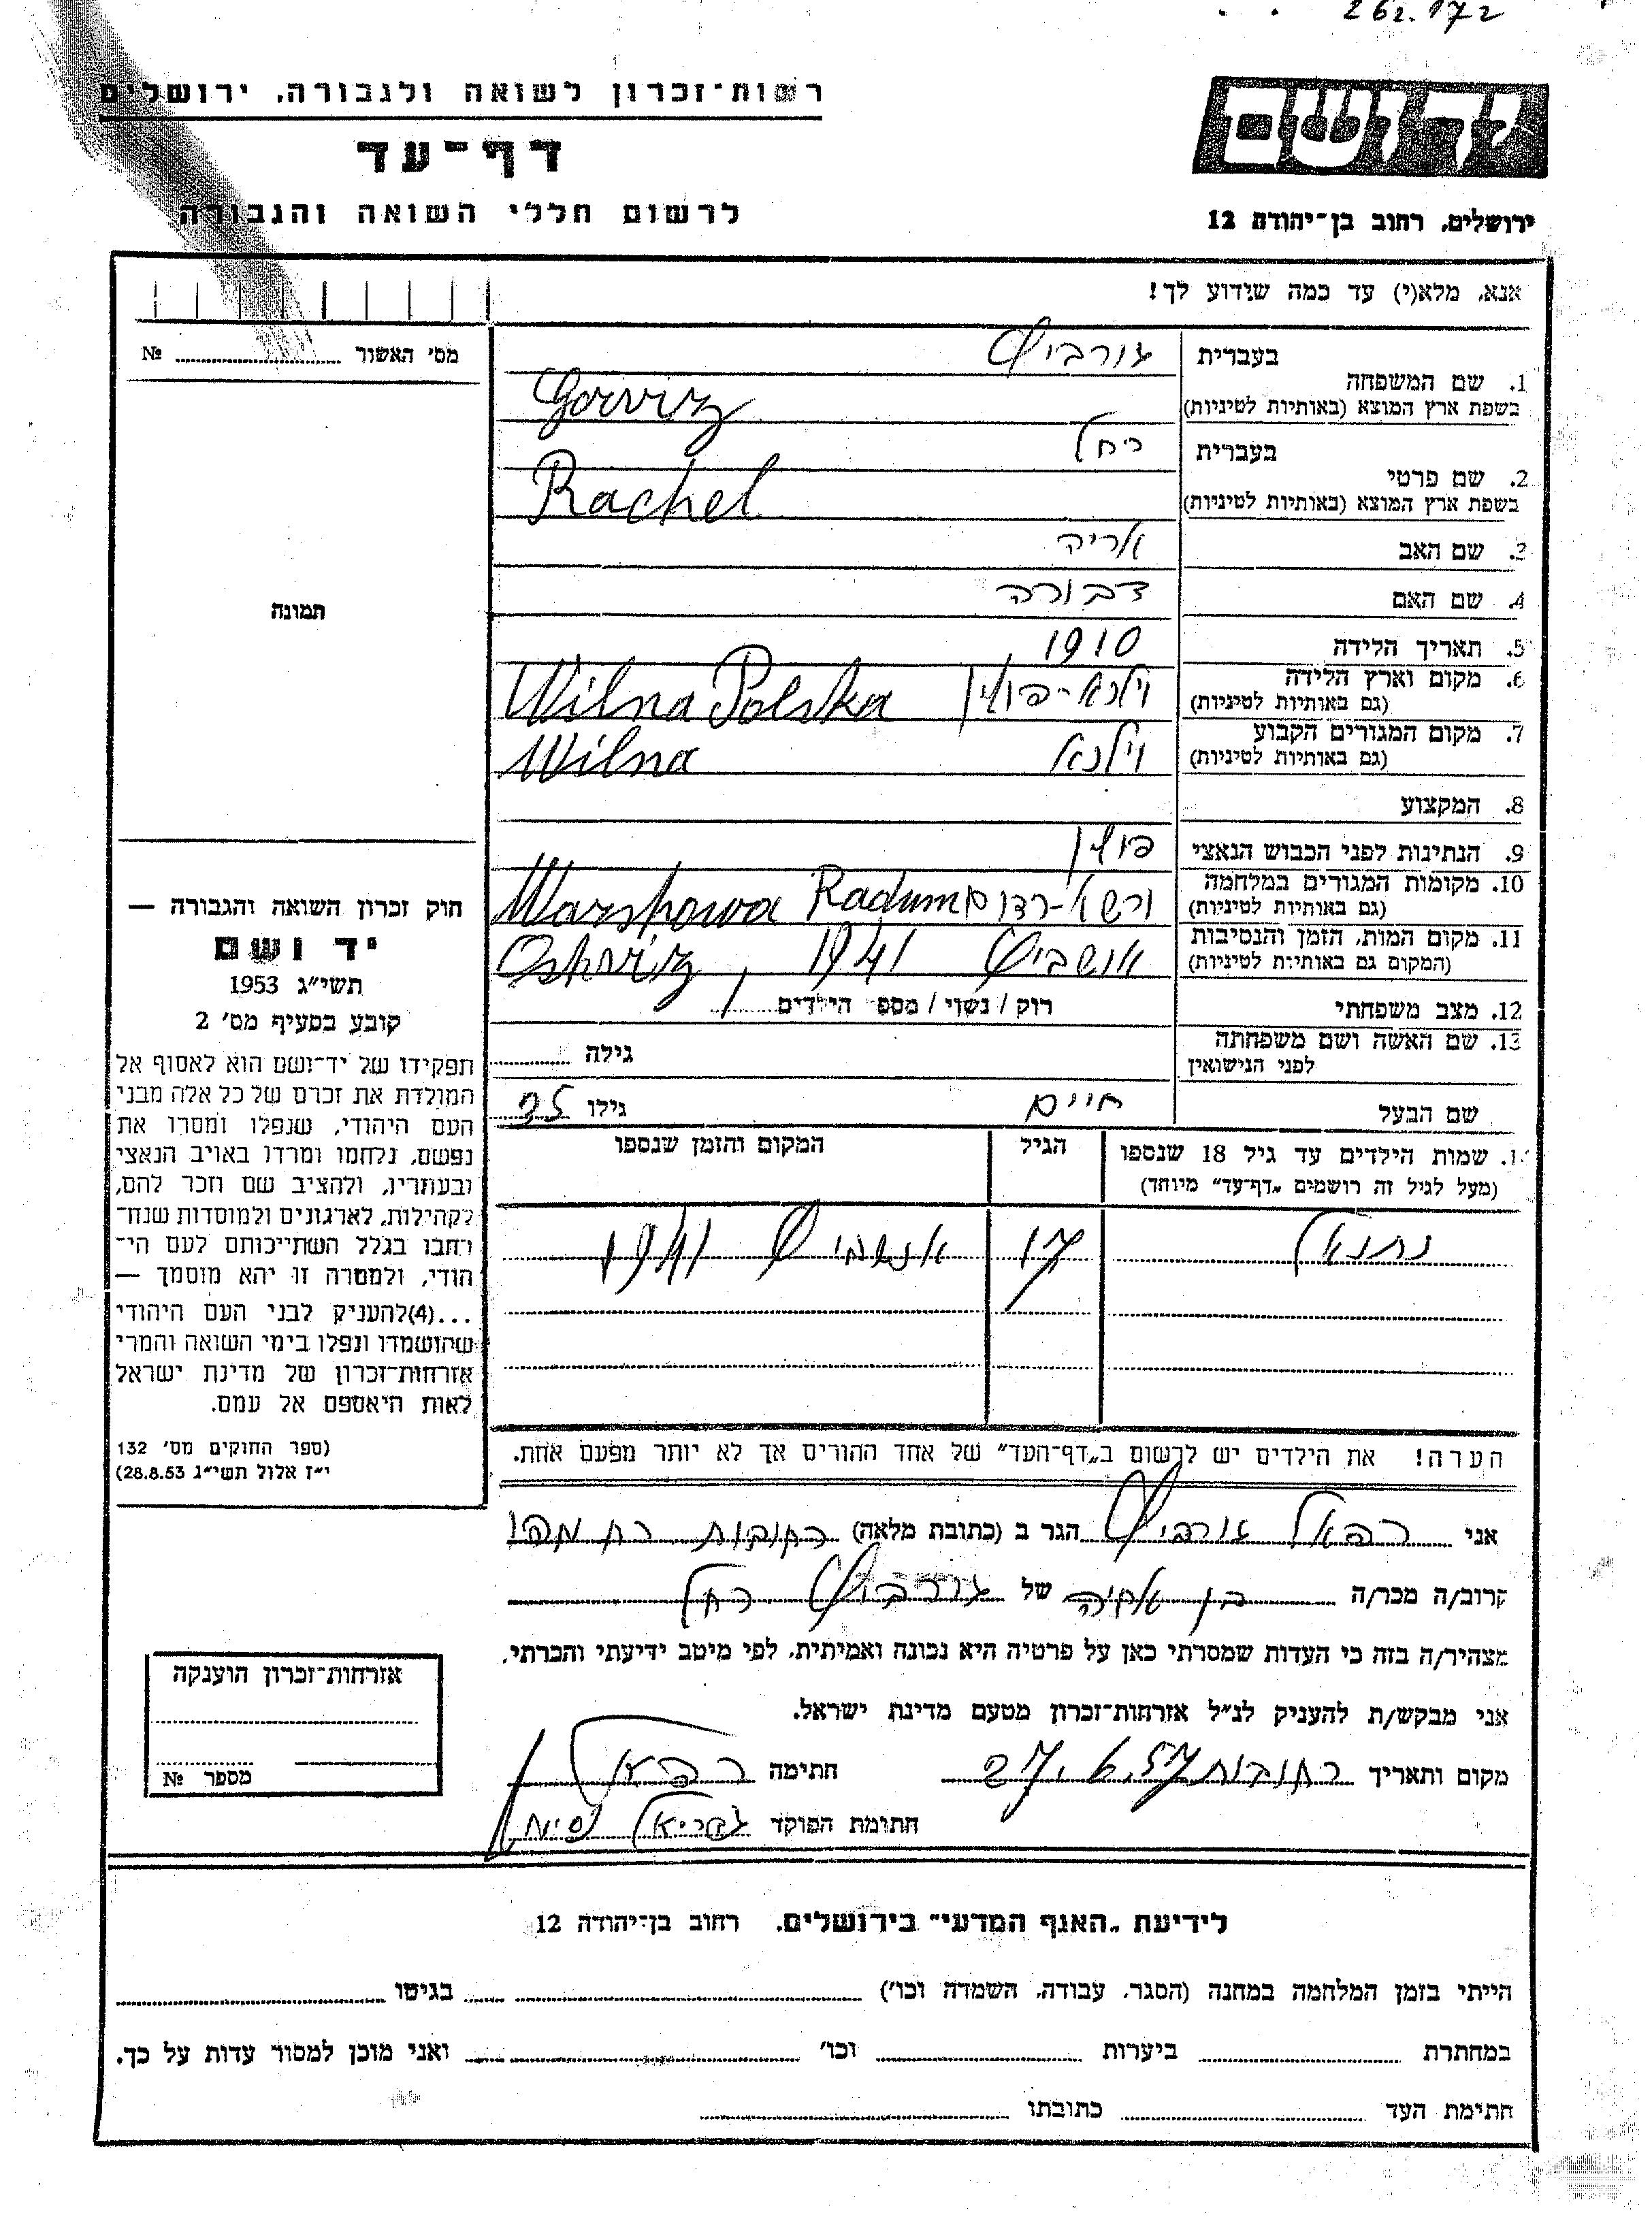 262.172
רשות־זכרון לשואה ולגבורה, ירושלים
דף־עד
לרשום חללי השואה והגבורה
יד ושם
ירושלים, רחוב בן־יהודה 12
אנא, מלא(י) עד כמה שידוע לך!
מס׳ האשור ........ №
1. שם המשפחה
בעברית גורביץ
בשפת ארץ המוצא (באותיות לטיניות) Gorviz
2. שם פרטי
בעברית רחל
בשפת ארץ המוצא (באותיות לטיניות) Rachel
3. שם האב אריה
4. שם האם דבורה
5. תאריך הלידה 1910
6. מקום וארץ הלידה (גם באותיות לטיניות) וילנא-פולין Wilna Polska
7. מקום המגורים הקבוע (גם באותיות לטיניות) וילנא Wilna
8. המקצוע
9. הנתינות לפני הכבוש הנאצי פולין
10. מקומות המגורים במלחמה (גם באותיות לטיניות) ורשא-רדום Warshowa Radum
11. מקום המות, הזמן והנסיבות (המקום גם באותיות לטיניות) אושביץ 1941 , Oshviz
12. מצב משפחתי רוק / נשוי / מספר הילדים ........
13. שם האשה ושם משפחתה לפני הנישואין גילה ........
שם הבעל חיים גילו 35
שמות הילדים עד גיל 18 שנספו
(מעל לגיל זה רושמים „דף־עד” מיוחד)
הגיל
המקום והזמן שנספו
נתנאל 17 1941
הערה! את הילדים יש לרשום ב„דף־העד” של אחד ההורים אך לא יותר מפעם אחת.
תמונה
חוק זכרון השואה והגבורה —
יד ושם
תשי״ג 1953
קובע בסעיף מס׳ 2
תפקידו של יד־ושם הוא לאסוף אל
המולדת את זכרם של כל אלה מבני
העם היהודי, שנפלו ומסרו את
נפשם, נלחמו ומרדו באויב הנאצי
ובעוזריו, ולהציב שם וזכר להם,
לקהילות, לארגונים ולמוסדות שנח־
רבו בגלל השתייכותם לעם הי־
הודי, ולמטרה זו יהא מוסמך —
...(4)להעניק לבני העם היהודי
שהושמדו ונפלו בימי השואה והמרי
אזרחות־זכרון של מדינת ישראל
לאות היאספם אל עמם.
(ספר החוקים מס׳ 132
י״ז אלול תשי״ג 28.8.53)
אני רפאל גורביץ הגר ב (כתובת מלאה) רחובות רח
קרוב/ה מכר/ה בן אחיה של גורביץ רחל
מצהיר/ה בזה כי העדות שמסרתי כאן על פרטיה היא נכונה ואמיתית, לפי מיטב ידיעתי והכרתי.
אני מבקש/ת להעניק לנ״ל אזרחות־זכרון מטעם מדינת ישראל.
מקום ותאריך רחובות 27.6.57 חתימה רפאל
חתומת הפוקד גבריאל
אזרחות־זכרון הוענקה
מספר №
לידיעת „האגף המדעי” בירושלים. רחוב בן־יהודה 12
הייתי בזמן המלחמה במחנה (הסגר, עבודה, השמדה וכו׳) ........ בגיטו ........
במחתרת ........ ביערות ........ וכו׳ ........ ואני מוכן למסור עדות על כך.
חתימת העד ........ כתובתו ........